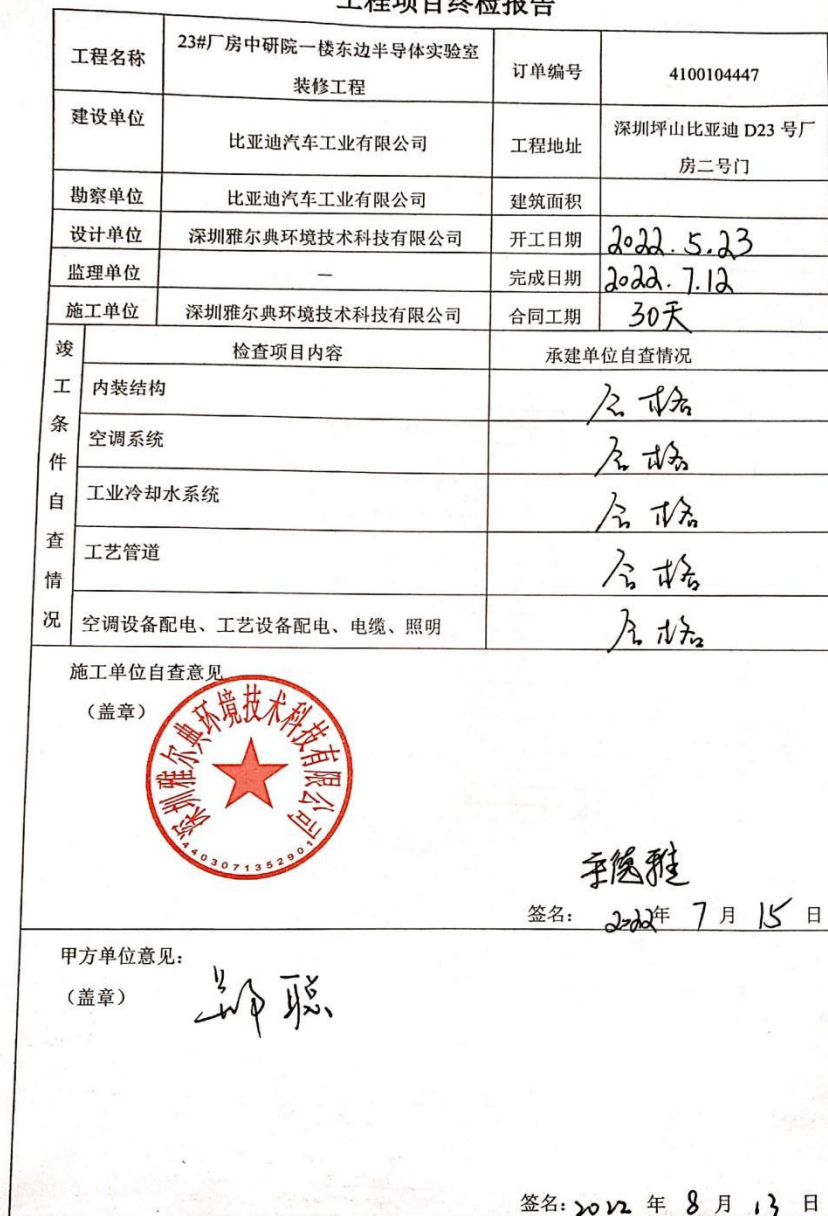 工程项目终检报告
工程名称 23#厂房中研院一楼东边半导体实验室装修工程 订单编号 4100104447
建设单位 比亚迪汽车工业有限公司 工程地址 深圳坪山比亚迪 D23 号厂房二号门
勘察单位 比亚迪汽车工业有限公司 建筑面积
设计单位 深圳雅尔典环境技术科技有限公司 开工日期 2022.5.23
监理单位 — 完成日期 2022.7.12
施工单位 深圳雅尔典环境技术科技有限公司 合同工期 30天
竣工条件自查情况 检查项目内容 承建单位自查情况
内装结构 合格
空调系统 合格
工业冷却水系统 合格
工艺管道 合格
空调设备配电、工艺设备配电、电缆、照明 合格
施工单位自查意见
（盖章）
深圳雅尔典环境技术科技有限公司
4403071352901
签名： 2022年 7月 15日
甲方单位意见：
（盖章）
聪
签名: 2022 年 8 月 13 日